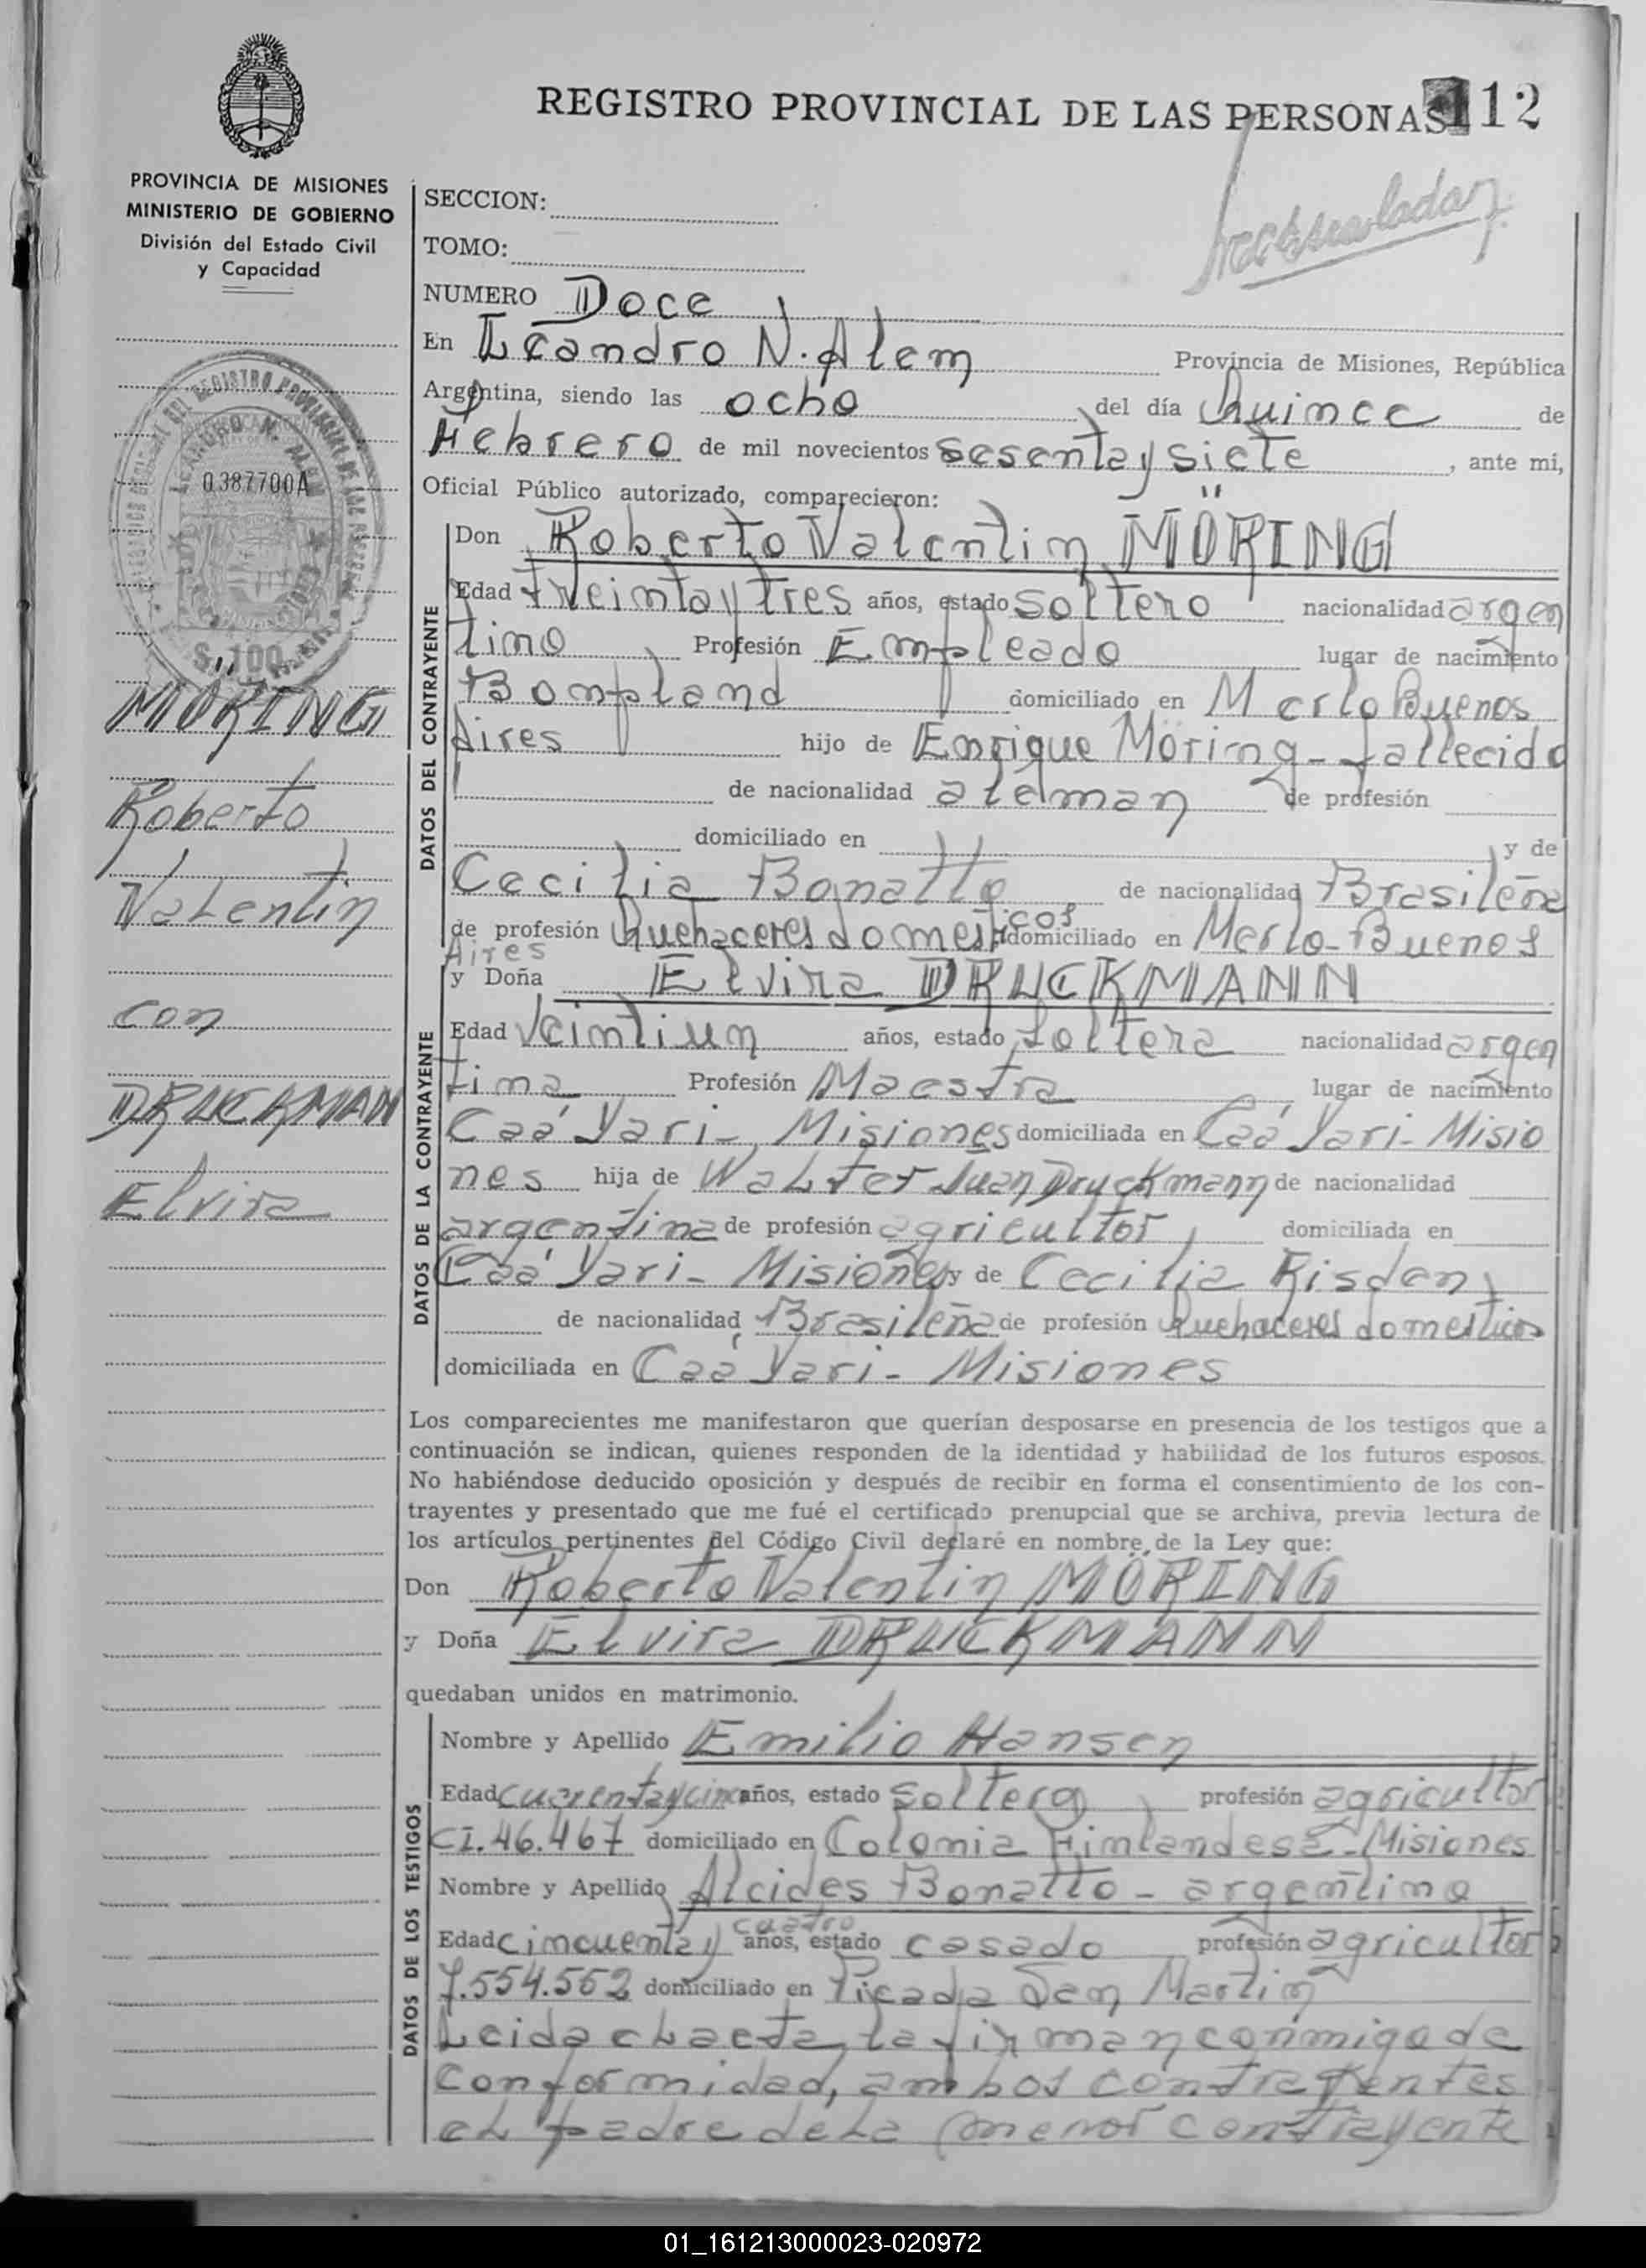 REGISTRO PROVINCIAL DE LAS PERSONAS 112
PROVINCIA DE MISIONES
MINISTERIO DE GOBIERNO
División del Estado Civil
y Capacidad
0387700A
$ 100
MÖRING
Roberto
Valentin
con
DRUCKMAN
Elvira
SECCION:
TOMO:
NUMERO Doce
En Leandro N. Alem Provincia de Misiones, República
Argentina, siendo las ocho del día Quince de
Febrero de mil novecientos sesentaysiete, ante mi,
Oficial Público autorizado, comparecieron:
DATOS DEL CONTRAYENTE
Don Roberto Valentin MÖRING
Edad treintaytres años, estado soltero nacionalidad argen
tino Profesión Empleado lugar de nacimiento
Bompland domiciliado en Merlo Buenos
Aires hijo de Enrique Möring - fallecido
de nacionalidad aleman de profesión
domiciliado en y de
Cecilia Bonatto de nacionalidad Brasileña
de profesión Quehaceres domesticos domiciliado en Merlo - Buenos
Aires
DATOS DE LA CONTRAYENTE
y Doña Elvira DRUCKMANN
Edad Veintiun años, estado soltera nacionalidad argen
tina Profesión Maestra lugar de nacimiento
Caá Yari - Misiones domiciliada en Caá Yari - Misio
nes hija de Walter Juan Druckmann de nacionalidad
argentina de profesión agricultor domiciliada en
Caá Yari - Misiones y de Cecilia Risden
de nacionalidad Brasileña de profesión Quehaceres domesticos
domiciliada en Caá Yari - Misiones
Los comparecientes me manifestaron que querían desposarse en presencia de los testigos que a
continuación se indican, quienes responden de la identidad y habilidad de los futuros esposos.
No habiéndose deducido oposición y después de recibir en forma el consentimiento de los con-
trayentes y presentado que me fué el certificado prenupcial que se archiva, previa lectura de
los artículos pertinentes del Código Civil declaré en nombre de la Ley que:
Don Roberto Valentin MÖRING
y Doña Elvira DRUCKMANN
quedaban unidos en matrimonio.
DATOS DE LOS TESTIGOS
Nombre y Apellido Emilio Hansen
Edad cuarentaycinco años, estado soltero profesión agricultor
CI. 46.467 domiciliado en Colonia Finlandesa - Misiones
Nombre y Apellido Alcides Bonatto - argentino
Edad cincuentay cuatro años, estado casado profesión agricultor
7.554.552 domiciliado en Picada San Martin
Leida el acta, la firman conmigo de
conformidad, ambos contrayentes
el padre de la menor contrayente
01_161213000023-020972